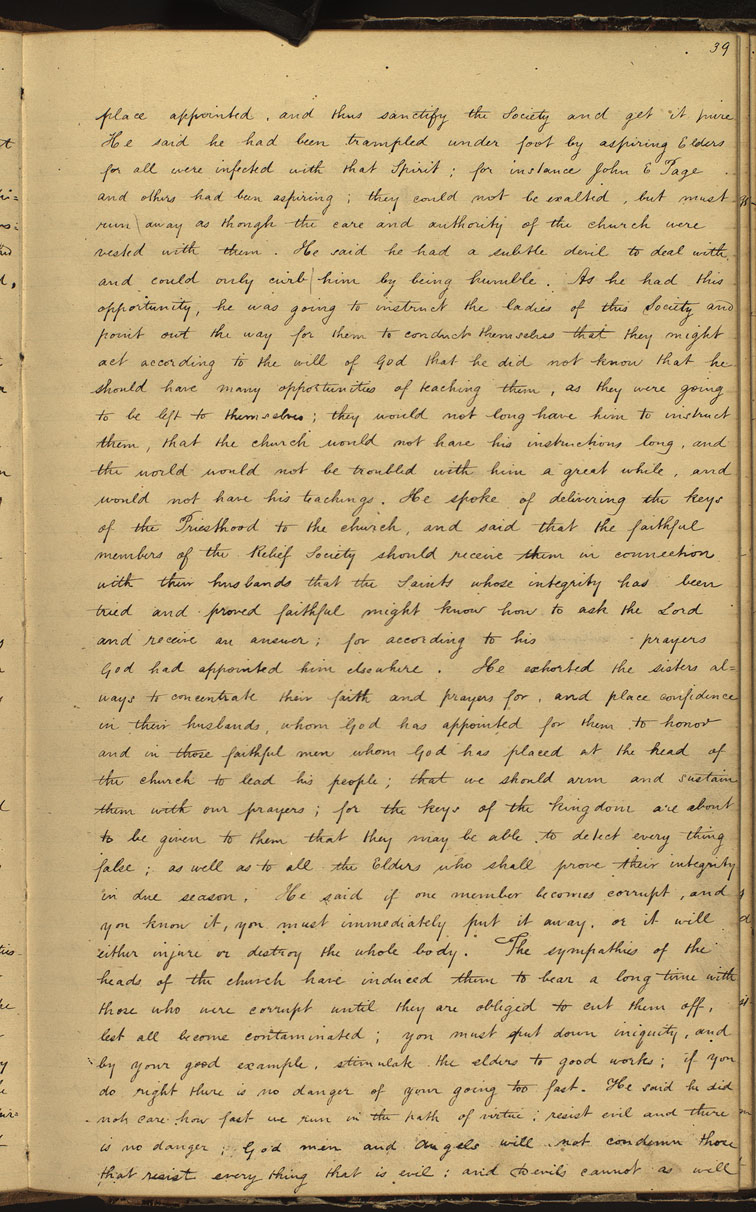 39
place appointed, and thus sanctify the Society and get it pure
He said he had been trampled under foot by aspiring Elders
for all were infected with that Spirit; for instance John E Page
and others had been aspiring; they could not be exalted, but must
run away as though the care and authority of the church were
vested with them. He said he had a subtle devil to deal with
and could only curb him by being humble. As he had this
opportunity, he was going to instruct the ladies of this Society and
point out the way for them to conduct themselves that they might
act according to the will of God that he did not know that he
should have many opportunities of teaching them, as they were going
to be left to themselves; they would not long have him to instruct
them, that the church would not have his instructions long, and
the world would not be troubled with him a great while, and
would not have his teachings. He spoke of delivering the keys
of the Priesthood to the church, and said that the faithful
members of the Relief Society should receive them in connection
with their husbands that the Saints whose integrity has been
tried and proved faithful might know how to ask the Lord
and receive an answer; for according to his prayers
God had appointed him elsewhere. He exhorted the sisters al=
ways to concentrate their faith and prayers for, and place confidence
in their husbands, whom God has appointed for them to honor
and in those faithful men whom God has placed at the head of
the church to lead his people; that we should arm and sustain
them with our prayers; for the keys of the kingdom are about
to be given to them that they may be able to detect every thing
false; as well as to all the Elders who shall prove their integrity
in due season. He said if one member becomes corrupt, and
you know it, you must immediately put it away. or it will
either injure or destroy the whole body. The sympathies of the
heads of the church have induced them to bear a long time with
those who were corrupt until they are obliged to cut them off,
lest all become contaminated; you must put down iniquity, and
by your good example, stimulate the elders to good works; if you
do right there is no danger of your going too fast. He said he did
not care how fast we run in the path of virtue; resist evil and there
is no danger; God men and angels will not condemn those
that resist every thing that is evil: and Devils cannot as well